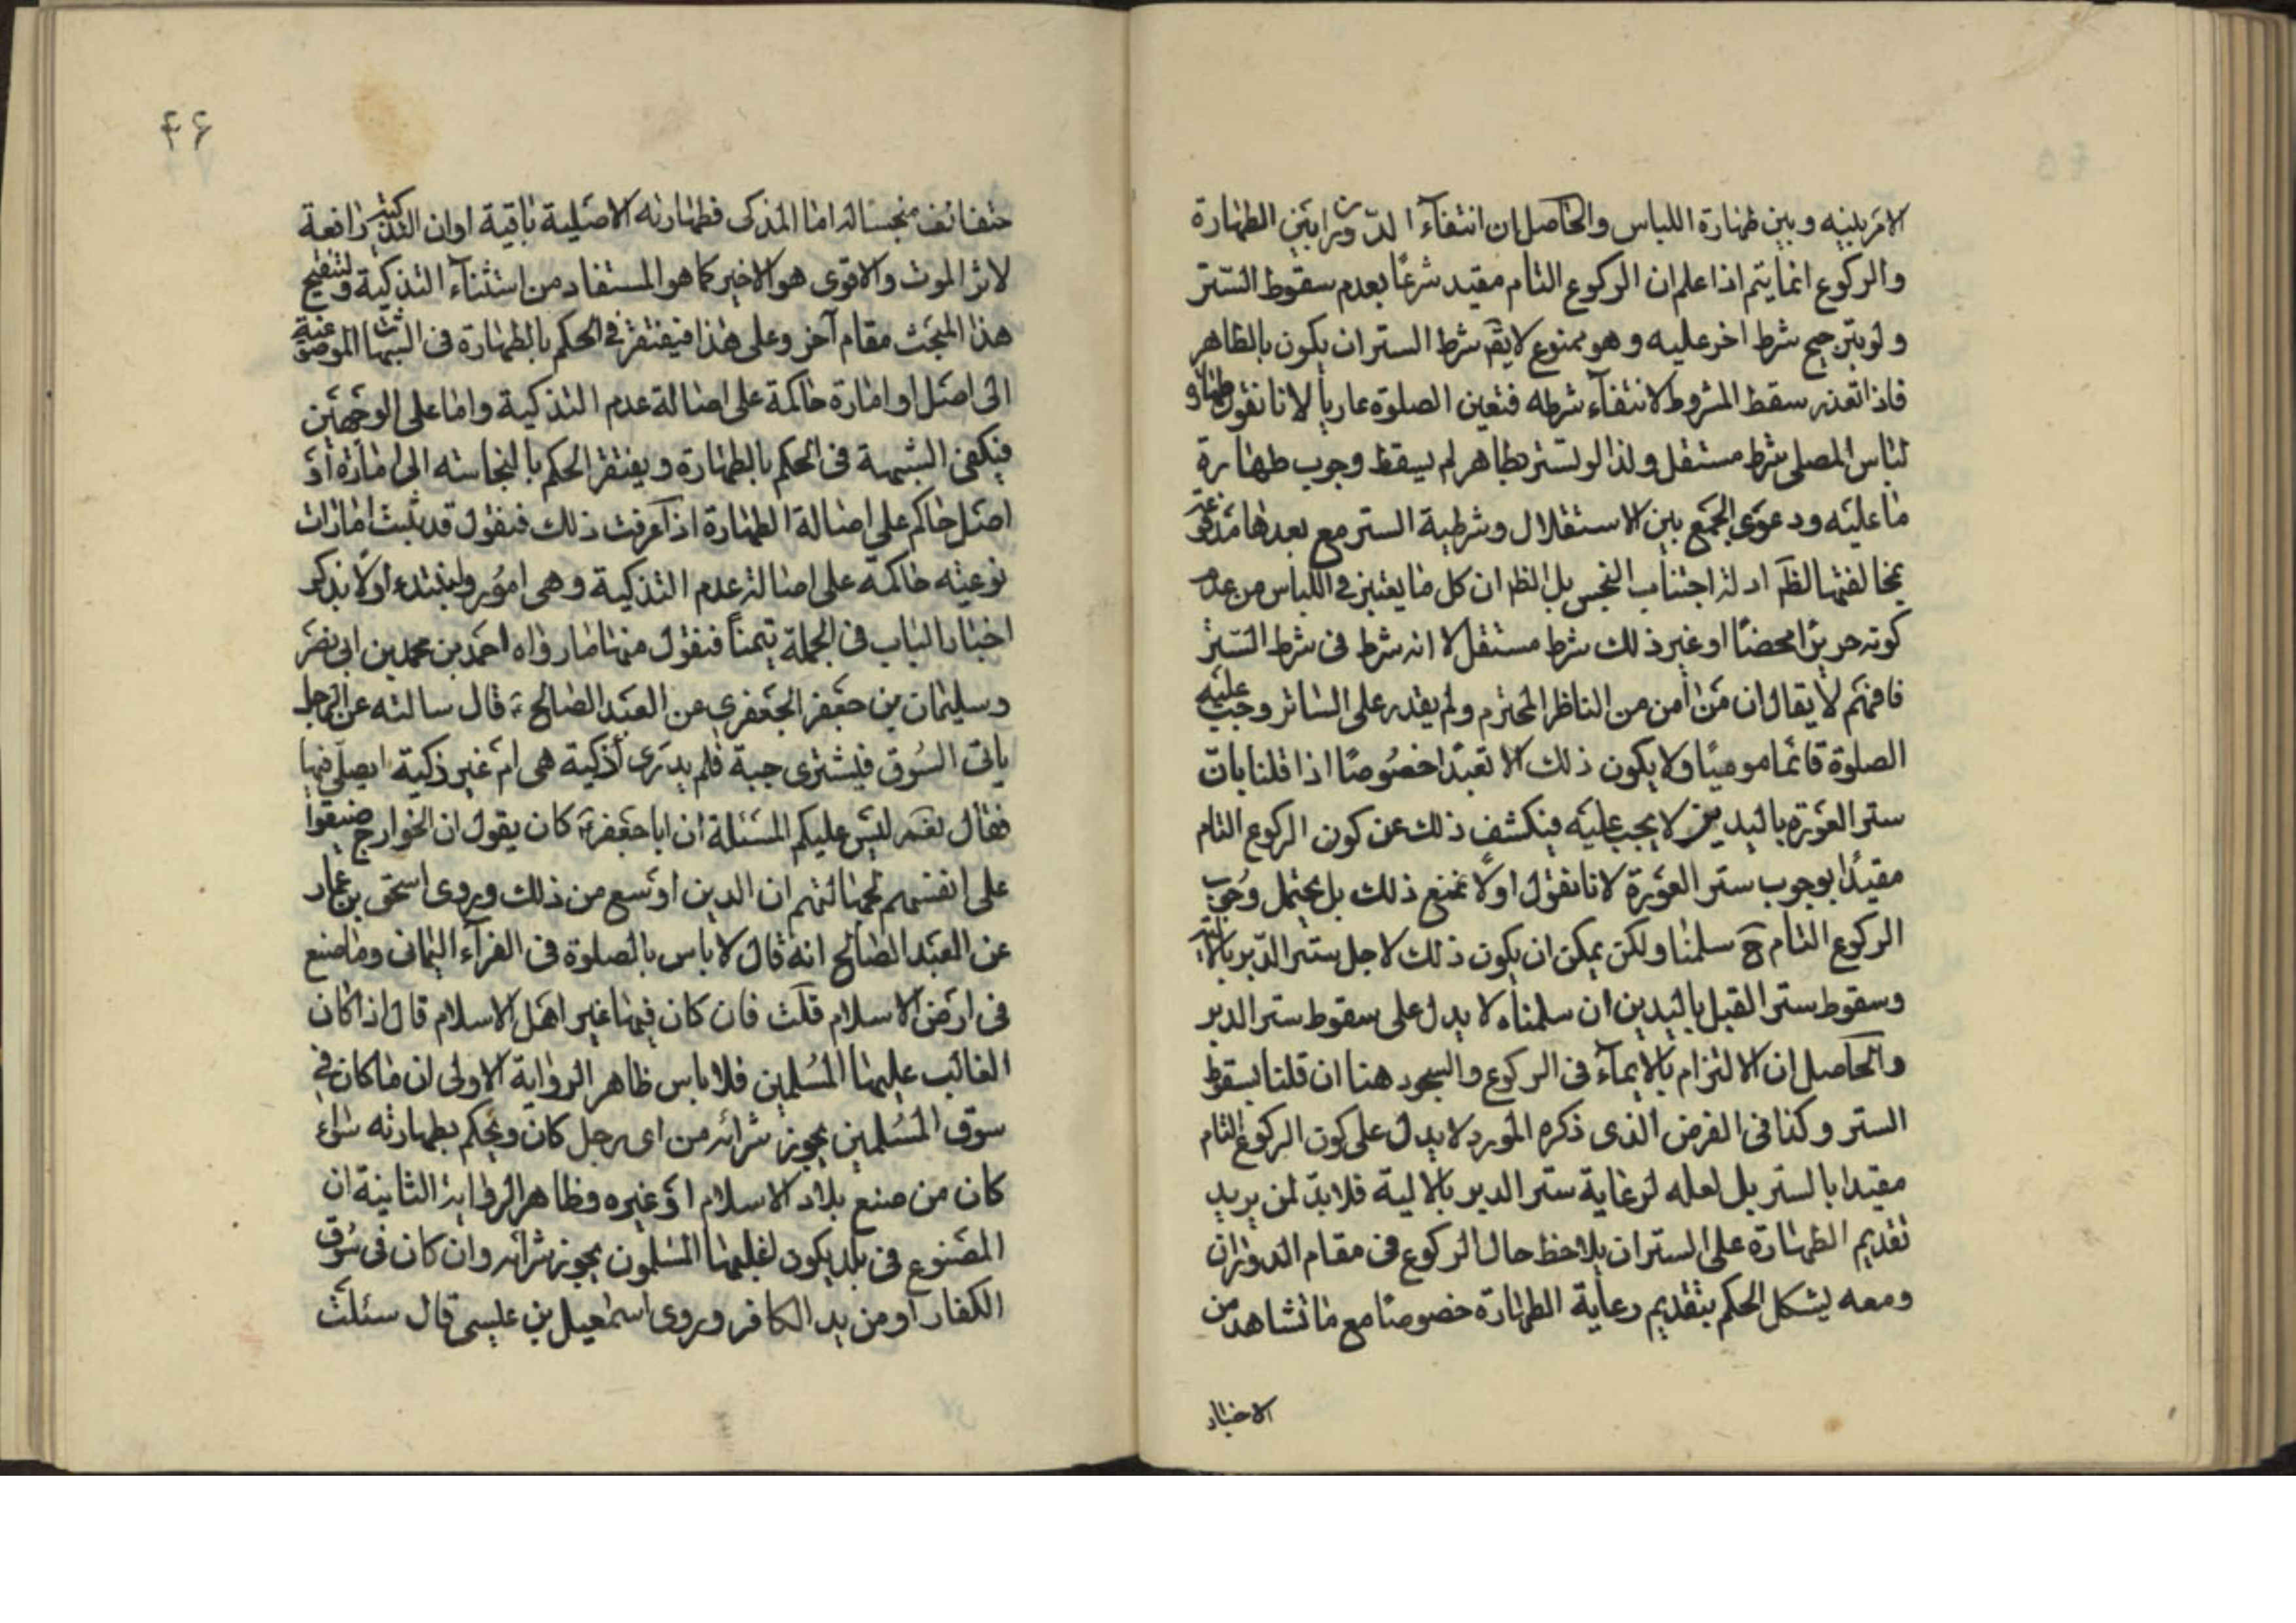 الامر بينه وبين طهارة اللباس والحاصل ان انتفاء الدوران بين الطهارة
والركوع انما يتم اذا علم ان الركوع التام مقيد شرعًا بعدم سقوط التستر
ولو بترجيح شرط اخر عليه وهو ممنوع لا يقم شرط الستر ان يكون بالظاهر
فاذا تعذر سقط المشروط لانتفاء شرطه فتعين الصلوة عاريا لانا نقول طهارة
لباس المصلى شرط مستقل ولذا لو تستر بطاهر لم يسقط وجوب طهارة
ما عليه ودعوى الجمع بين الاستقلال وشرطية الستر مع بعدها
بمخالفتها لظم ادلة اجتناب النجس بل الظم ان كل ما يعتبر في اللباس من عدم
كونه حريرًا محضًا او غير ذلك شرط مستقل لا انه شرط فى شرط الستر
فافهم لا يقال ان من امن من الناظر المحترم ولم يقدر على الساتر وجب عليه
الصلوة قائما موميًا ولا يكون ذلك الا تعبدًا خصوصًا اذا قلنا بان
ستر العورة باليدين لا يجب عليه فينكشف ذلك عن كون الركوع التام
مقيدًا بوجوب ستر العورة لانا نقول اولًا نمنع ذلك بل يحتمل وجوب
الركوع التام ح سلمنا ولكن يمكن ان يكون ذلك لاجل ستر الدبر بالالية
وسقوط ستر القبل باليدين ان سلمناه لا يدل على سقوط ستر الدبر
والحاصل ان الالتزام بالايماء فى الركوع والسجود هنا ان قلنا بسقوط
الستر وكذا فى الفرض الذى ذكره المورد لا يدل على كون الركوع التام
مقيدا بالستر بل لعله لرعاية ستر الدبر بالالية فلا بد لمن يريد
تقديم الطهارة على الستر ان يلاحظ حال الركوع فى مقام الدوران
ومعه يشكل الحكم بتقديم رعاية الطهارة خصوصًا مع ما نشاهد من
الاخبار
۴۶
حتف انف منجسا له اما المذكى فطهارته الاصلية باقية او ان التذكية رافعة
لاثر الموت والاقوى هو الاخير كما هو المستفاد من استثناء التذكية ولتنقيح
هذا المبحث مقام آخر وعلى هذا فيفتقر فى الحكم بالطهارة فى الشبهات الموضوعية
الى اصل او امارة حاكمة على اصالة عدم التذكية واما على الوجهين
فيكفى الشبهة فى الحكم بالطهارة ويفتقر الحكم بالنجاسه الى امارة او
اصل حاكم على اصالة الطهارة اذا عرفت ذلك فنقول قد ثبت امارات
نوعيه حاكمة على اصالة عدم التذكية وهى امور ولنبتدء اولًا بذكر
اخبار الباب فى الجملة تيمناً فنقول منها ما رواه احمد بن محمد بن ابى نصر
وسليمان بن جعفر الجعفرى عن العبد الصالح ع قال سالته عن الرجل
ياتى السوق فيشترى جبة فلم يدرى أذكية هى ام غير ذكية ايصلى فيها
فقال نعم ليس عليكم المسئلة ان ابا جعفر ع كان يقول ان الخوارج ضيقوا
على انفسهم بجهالتهم ان الدين اوسع من ذلك وروى اسحق بن عمار
عن العبد الصالح انه قال لا باس بالصلوة فى الفراء اليمانى وما صنع
فى ارض الاسلام قلت فان كان فيها غير اهل الاسلام قال اذا كان
الغالب عليها المسلمين فلا باس ظاهر الرواية الاولى ان ما كان فى
سوق المسلمين يجوز شرائه من اى رجل كان ويحكم بطهارته سواء
كان من صنع بلاد الاسلام او غيره وظاهر الرواية الثانية ان
المصنوع فى بلد يكون اغلبها المسلمون يجوز شرائه وان كان فى سوق
الكفار او من يد الكافر وروى اسمعيل بن عيسى قال سئلت